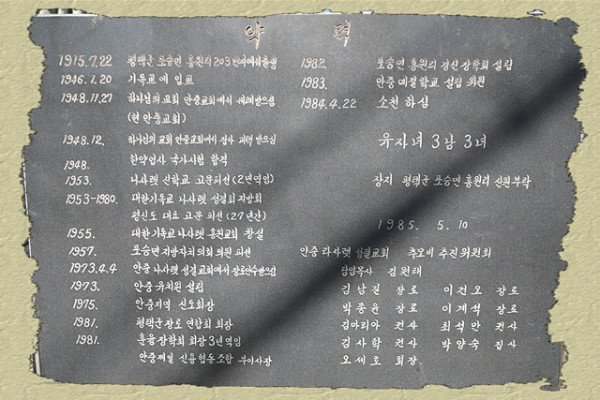 약 력
1915.7.22 평택군 포승면 홍원리 203번지에서 출생
1946.1.20 기독교에 입교
1948.11.27 하나님의 교회 안중교회에서 세례 받으심
(현 안중교회)
1948.12. 하나님의 교회 안중교회에서 집사 피택 받으심
1948. 한약업사 국가시험 합격
1953. 나사렛 신학교 고문피선 (2년역임)
1953-1980. 대한기독교 나사렛 성결회 지방회
평신도 대표 고문 피선 (27년간)
1955. 대한 기독교 나사렛 홍원교회 창설
1957. 포승면 지방자치 의회 의원 피선
1973.4.4 안중 나사렛 성결교회에서 장로안수받으심
1973. 안중 유치원 설립
1975. 안중지역 신도회장
1981. 평택군 장로 연합회 회장
1981. 훈육장학회 회장 3년 역임
안중제일 신용협동조합 부이사장
1982. 포승면 홍원리 경신 장학회 설립
1983. 안중 예절학교 설립 위원
1984.4.22 소천 하심
유자녀 3남 3녀
장지 평택군 포승면 홍원리 신원부락
1985. 5. 10
안중 나사렛 성결교회 추모비 추진위원회
담임목사 김원태
김남진 장로 이건오 장로
박종윤 장로 이계석 장로
김마리아 권사 최석만 권사
김사학 권사 박양숙 집사
오세호 회장